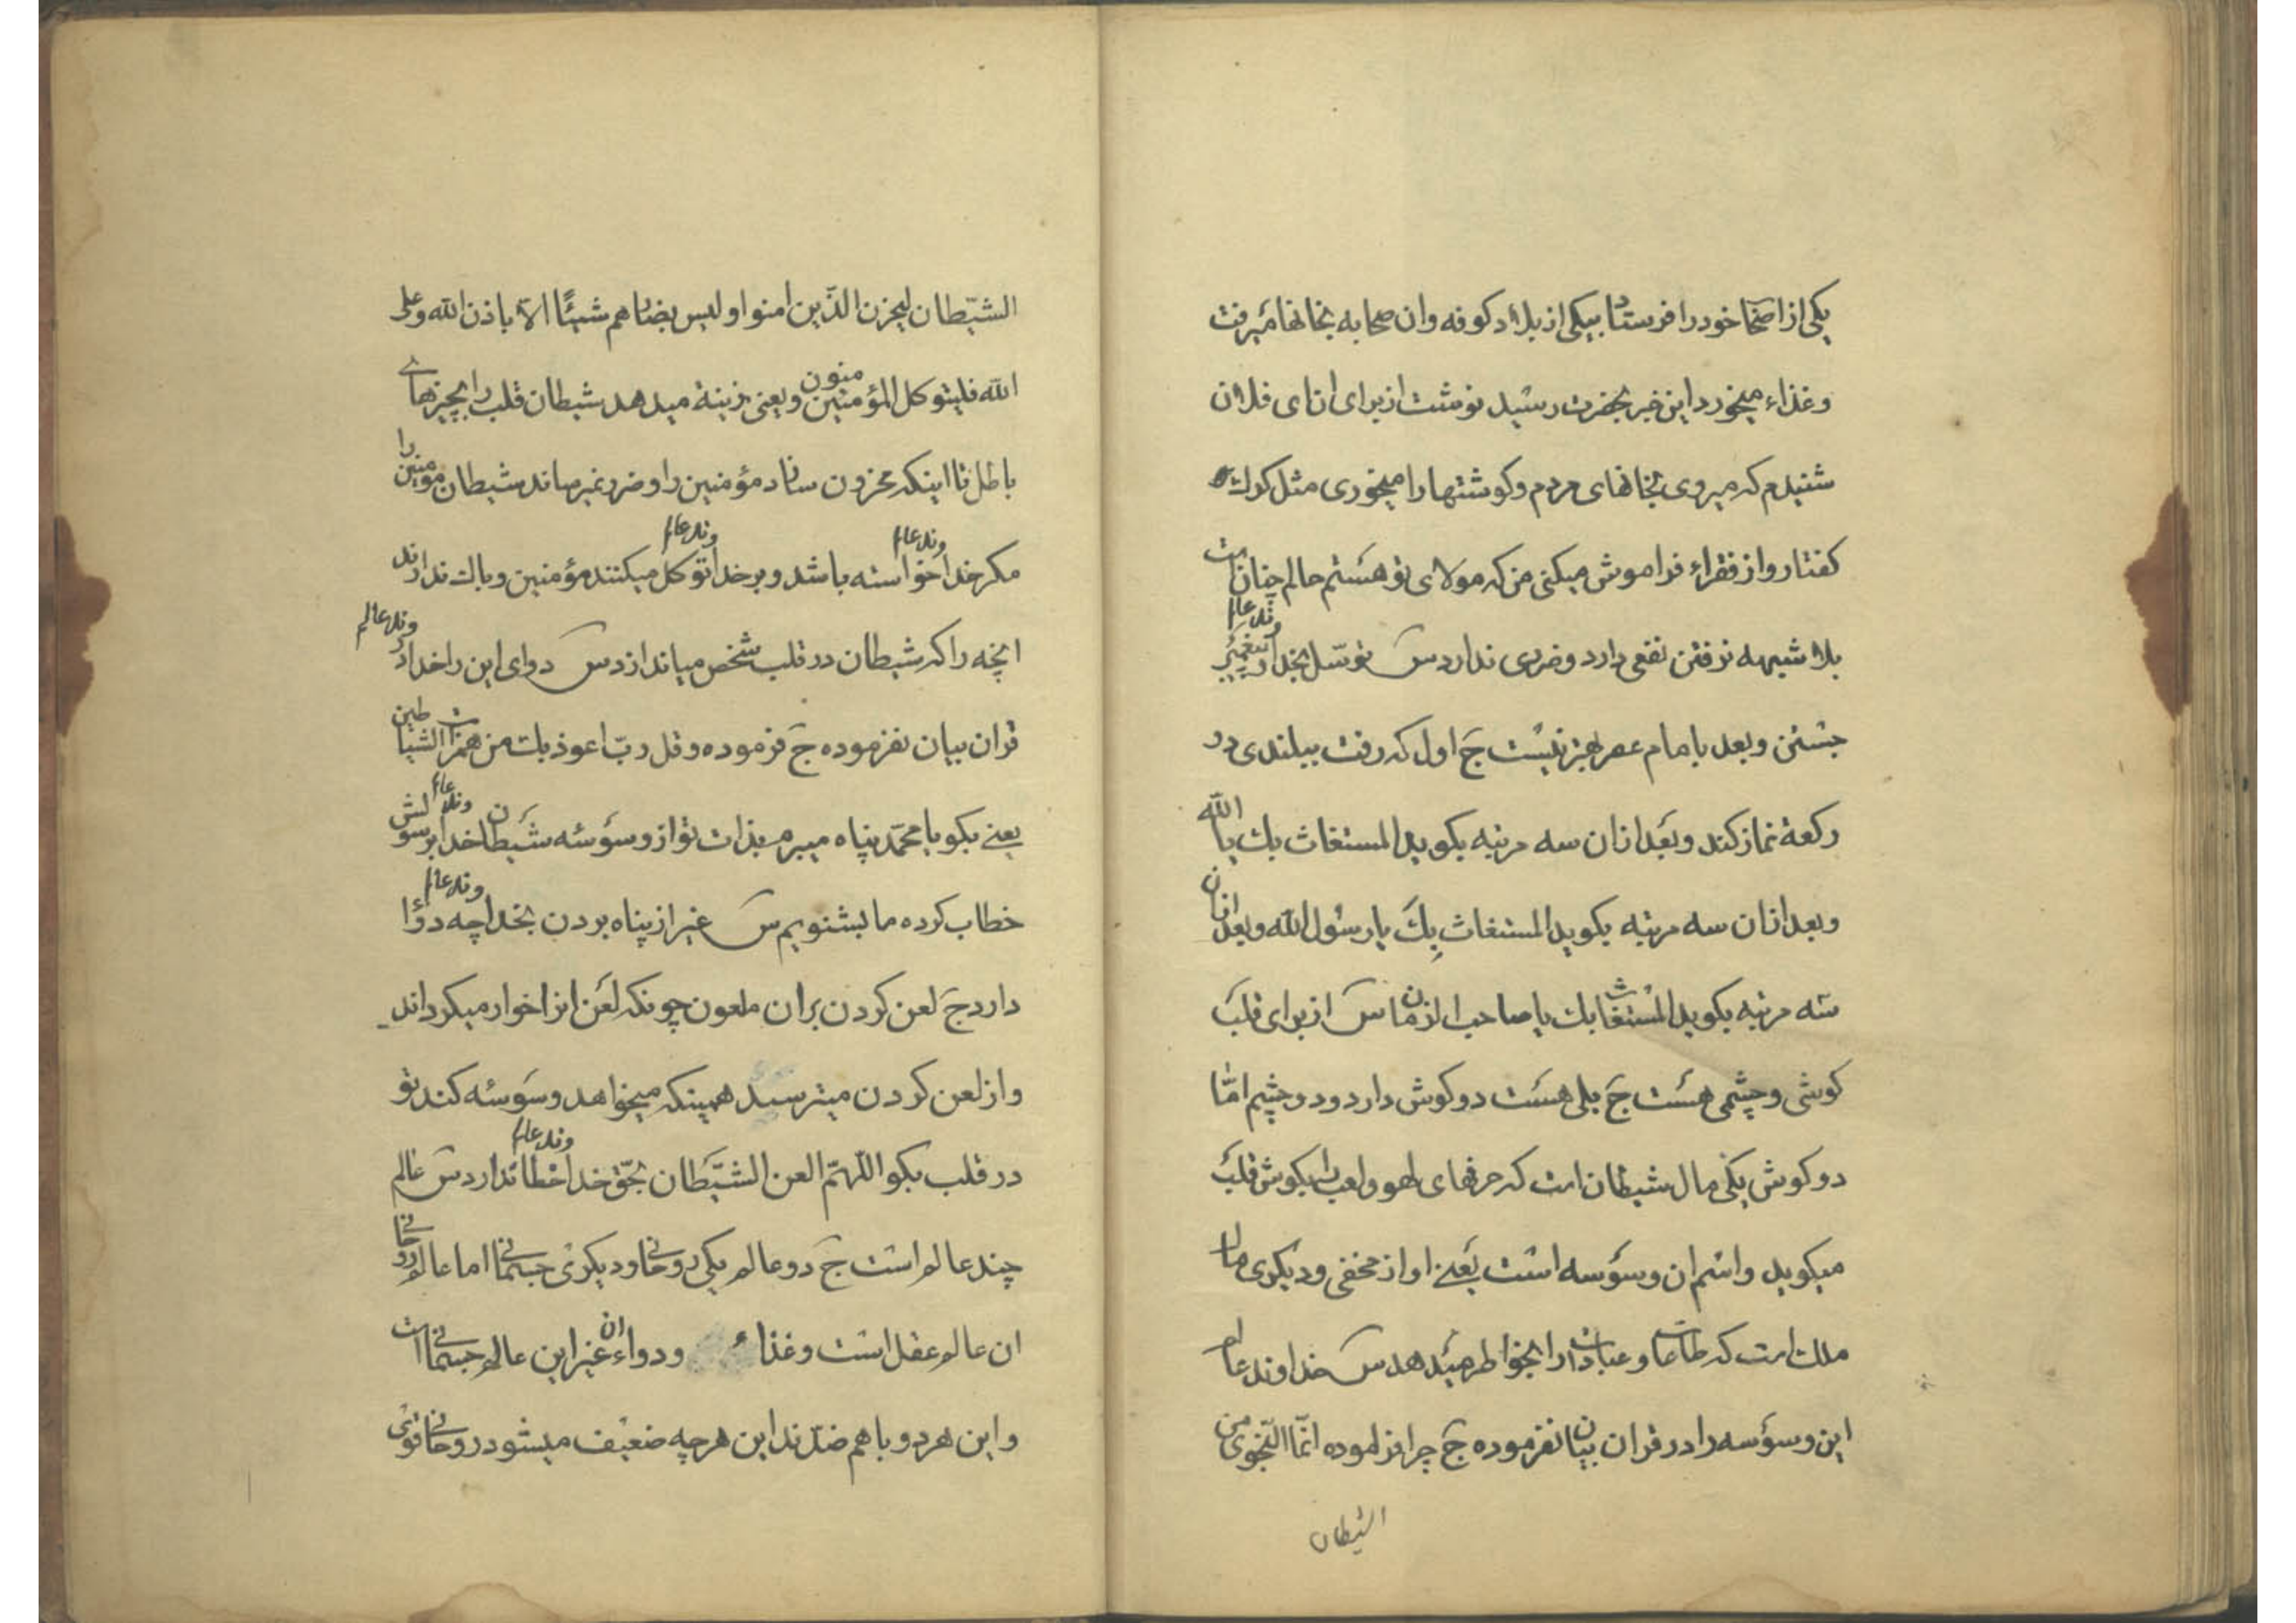 یکی از اصحا خود را فرستاد بیکی از بلاد کوفه وان صحابه بخانها میرفت
وغذاء میخورد این خبر بحضرت رسید نوشت از برای ان ای فلان
شنیدم که میروی بخانهای مردم وکوشتها را میخوری مثل کرك
کفتار واز فقراء فراموش میکنی من که مولای تو هستم حالم چنان است
بلا شبهه نرفتن نفعی دارد وضرری ندارد س توسّل بخداوند عالم وپیغمبر
جستن وبعد بامام عصر بهتر نیست ج اول که رفت ببلندی دو
رکعة نماز کند وبعد ازان سه مرتبه بکوید المستغاث بك یا الله
وبعد ازان سه مرتبه بکوید المستغاث بِكَ یا رسول الله وبعد ازان
سه مرتبه بکوید المستغاث بك یا صاحب الزمان س از برای قلب
کوشی وچشمی هست ج بلی هست دو کوش دارد ودو چشم امّا
دو کوش یکی مال شیطان است که حرفهای لهو ولعب را بکوش قلب
میکوید واسم ان وسؤسه است یعنے اواز مخفی ودیکری مال
ملك است که طاعات وعبادات را بخواطر میدهد س خداوند عالم
این وسؤسه را در قران بیان نفرموده ج چرا فرموده انّما النّجوی من
الشیطان
الشّیطان لیحزن الذّین امنوا ولیس بضارهم شیئًا الّا باذن الله وعلی
الله فلیتوکل المؤمنون ویعنی زینة میدهد شیطان قلب را بچیزهاے
باطل تا اینکه محزون سازد مؤمنین را وضرر نمیرساند شیطان مومنین را
مکر خداوند عالم خواسته باشد وبر خداوند عالم توکل میکنند مؤمنین وباك ندارند
انچه را که شیطان در قلب شخص میاندازد س دوای این را خداوند عالم در
قران بیان نفرموده ج فرموده وقل ربّ اعوذ بك من همزات الشیاطین
یعنے بکو یا محمّد پناه میبرم بذات تو از وسؤسه شیطان خداوند عالم برسولش
خطاب کرده ما بشنویم س غیر از پناه بردن بخداوند عالم چه دوا
دارد ج لعن کردن بران ملعون چونکه لعن انرا خوار میکرداند
واز لعن کردن میترسد همینکه میخواهد وسوسه کند تو
در قلب بکو اللّهمّ العن الشّیطان بحّق خداوند عالم خطا ندارد س عالم
چند عالم است ج دو عالم یکی روحانے ودیکری جسمانے اما عالم روحانے
ان عالم عقل است وغذاء ودواء ان غیر این عالم جسمانے است
واین هر دو باهم ضدّند این هرچه ضعیف میشود روحانے قوی